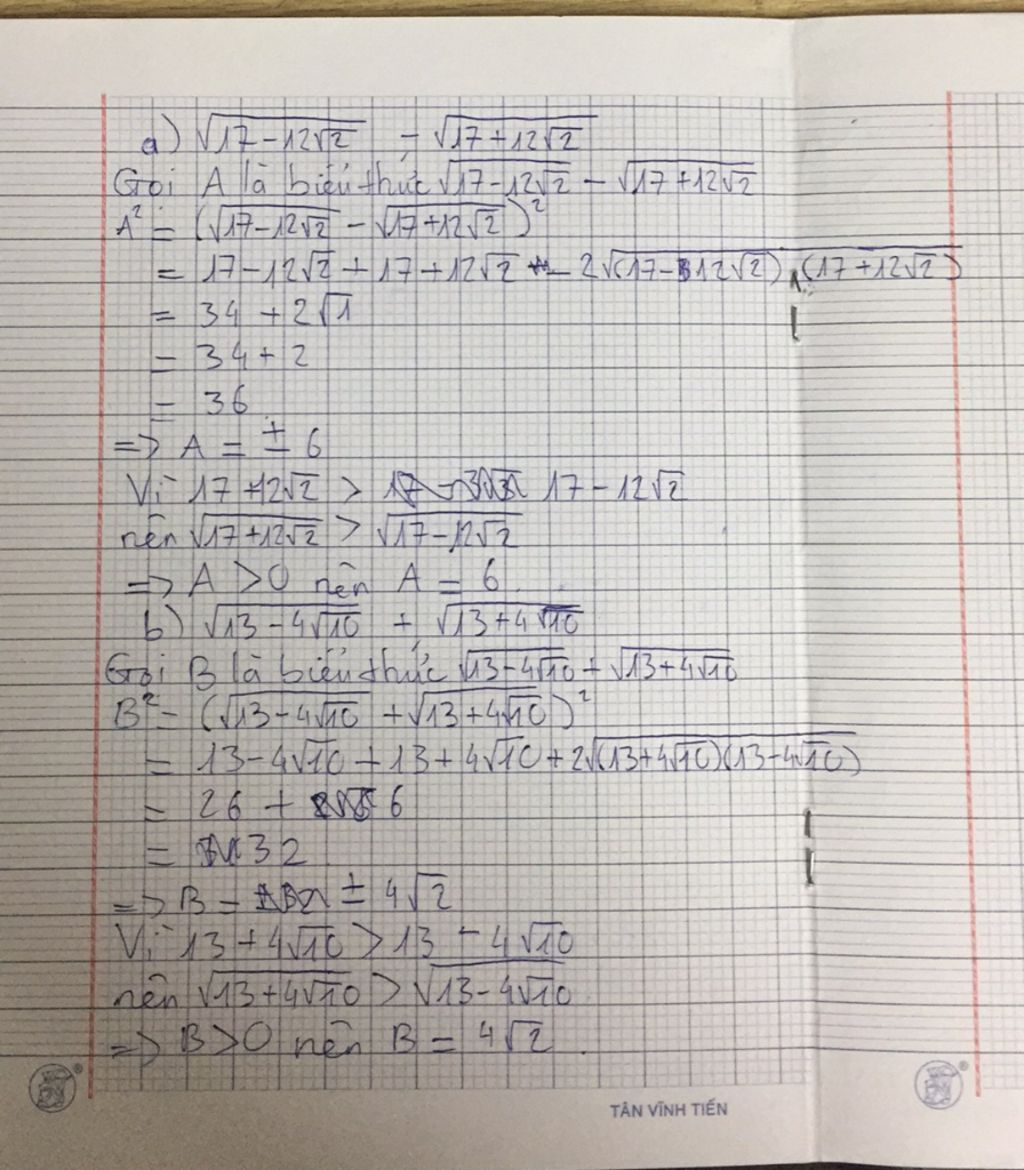 a) √(17-12√2) - √(17+12√2)
Gọi A là biểu thức √(17-12√2) - √(17+12√2)
A² = (√(17-12√2) - √(17+12√2))²
= 17-12√2 + 17+12√2 - 2√((17-12√2).(17+12√2))
= 34 + 2√1
= 34 + 2
= 36
=> A = ± 6
Vì 17+12√2 > 17-12√2
nên √(17+12√2) > √(17-12√2)
=> A > 0 nên A = 6.
b) √(13-4√10) + √(13+4√10)
Gọi B là biểu thức √(13-4√10) + √(13+4√10)
B² = (√(13-4√10) + √(13+4√10))²
= 13-4√10 + 13+4√10 + 2√((13+4√10)(13-4√10))
= 26 + 6
= 32
=> B = ± 4√2
Vì 13+4√10 > 13-4√10
nên √(13+4√10) > √(13-4√10)
=> B > 0 nên B = 4√2.
TÂN VĨNH TIẾN